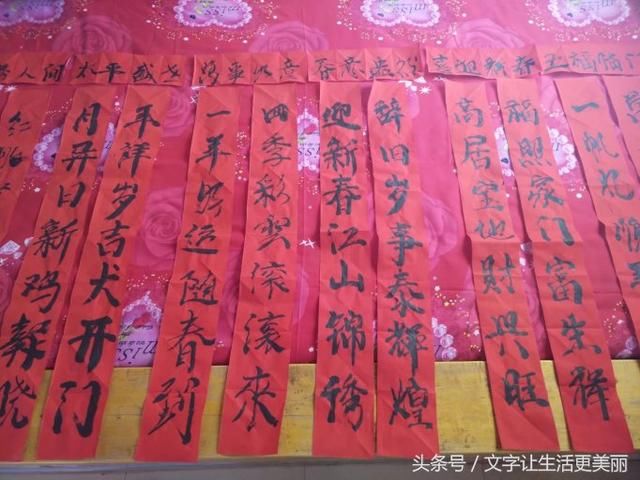 人间
太平盛世
事如意
喜迎新春
五福临门
红桃
月异日新鸡報晓
年祥岁吉犬开门
一年好运随春到
四季彩雲滚滚來
迎新春江山锦绣
辞旧岁事泰辉煌
高居宝地财兴旺
福照家门富生祥
一帆风顺
头条号 / 文字让生活更美丽